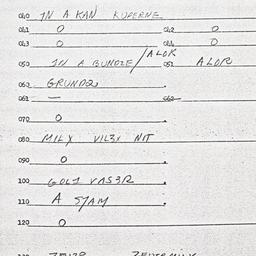 040 IN A KAN KUPERNE
041 0 042 0
043 0 044 0
050 IN A BUNDZE / A LOK 051 A LOR
060 GRUNDQ
061 — 062
070 0
080 MILX VIL3X NIT
090 0
100 GOL1 VAS3R
110 A STAM
120 0